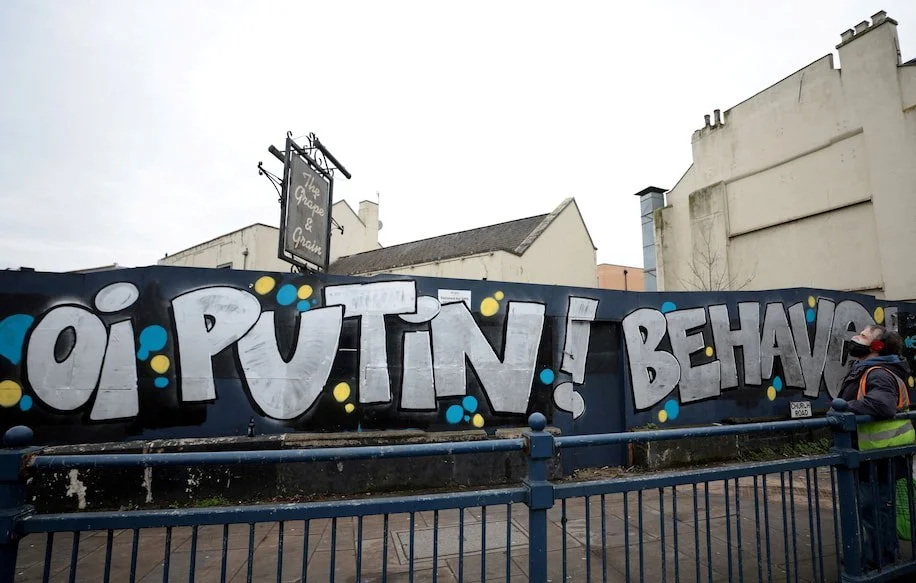 The
Grape
&
Grain
OI PUTIN! BEHAVE
CHURCH
ROAD